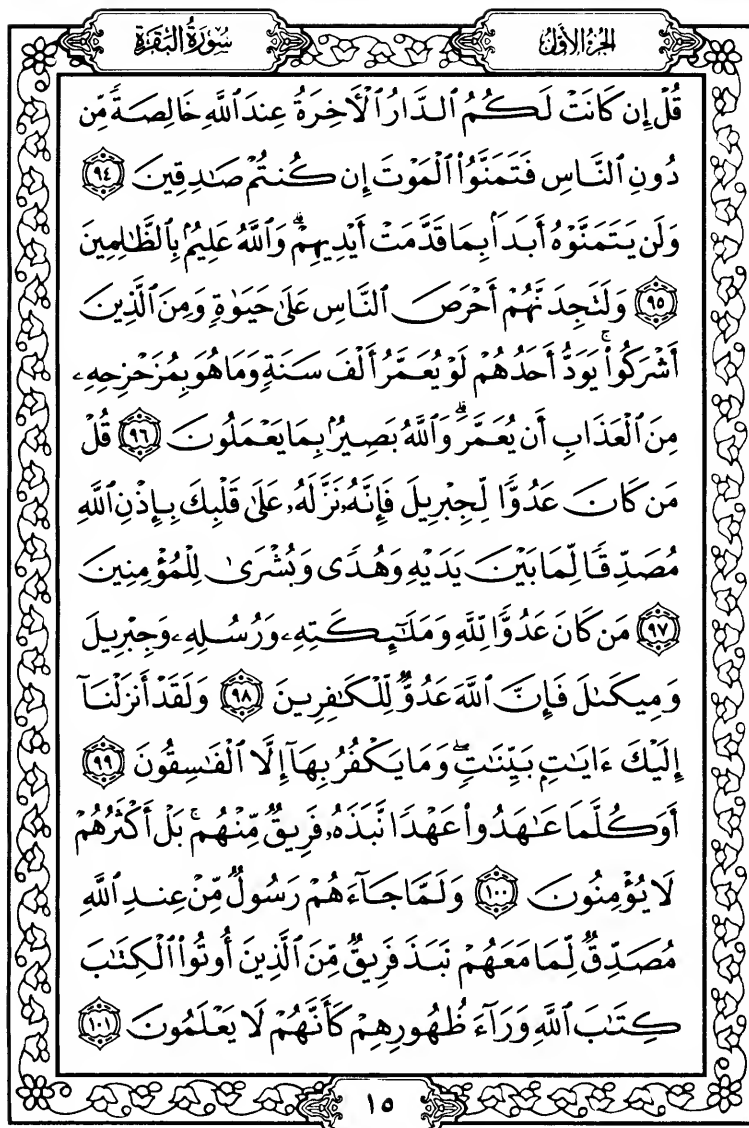 الجزء الأول
سورة البقرة
قُلْ إِن كَانَتْ لَكُمُ ٱلدَّارُ ٱلْأَخِرَةُ عِندَ ٱللَّهِ خَالِصَةً مِّن
دُونِ ٱلنَّاسِ فَتَمَنَّوُا۟ ٱلْمَوْتَ إِن كُنتُمْ صَٰدِقِينَ ٩٤
وَلَن يَتَمَنَّوْهُ أَبَدًۢا بِمَا قَدَّمَتْ أَيْدِيهِمْ ۗ وَٱللَّهُ عَلِيمٌۢ بِٱلظَّٰلِمِينَ
٩٥ وَلَتَجِدَنَّهُمْ أَحْرَصَ ٱلنَّاسِ عَلَىٰ حَيَوٰةٍ وَمِنَ ٱلَّذِينَ
أَشْرَكُوا۟ ۚ يَوَدُّ أَحَدُهُمْ لَوْ يُعَمَّرُ أَلْفَ سَنَةٍ وَمَا هُوَ بِمُزَحْزِحِهِۦ
مِنَ ٱلْعَذَابِ أَن يُعَمَّرَ ۗ وَٱللَّهُ بَصِيرٌۢ بِمَا يَعْمَلُونَ ٩٦ قُلْ
مَن كَانَ عَدُوًّا لِّجِبْرِيلَ فَإِنَّهُۥ نَزَّلَهُۥ عَلَىٰ قَلْبِكَ بِإِذْنِ ٱللَّهِ
مُصَدِّقًا لِّمَا بَيْنَ يَدَيْهِ وَهُدًى وَبُشْرَىٰ لِلْمُؤْمِنِينَ
٩٧ مَن كَانَ عَدُوًّا لِّلَّهِ وَمَلَٰٓئِكَتِهِۦ وَرُسُلِهِۦ وَجِبْرِيلَ
وَمِيكَىٰلَ فَإِنَّ ٱللَّهَ عَدُوٌّ لِّلْكَٰفِرِينَ ٩٨ وَلَقَدْ أَنزَلْنَآ
إِلَيْكَ ءَايَٰتٍۭ بَيِّنَٰتٍ ۖ وَمَا يَكْفُرُ بِهَآ إِلَّا ٱلْفَٰسِقُونَ ٩٩
أَوَكُلَّمَا عَٰهَدُوا۟ عَهْدًا نَّبَذَهُۥ فَرِيقٌ مِّنْهُم ۚ بَلْ أَكْثَرُهُمْ
لَا يُؤْمِنُونَ ١٠٠ وَلَمَّا جَآءَهُمْ رَسُولٌ مِّنْ عِندِ ٱللَّهِ
مُصَدِّقٌ لِّمَا مَعَهُمْ نَبَذَ فَرِيقٌ مِّنَ ٱلَّذِينَ أُوتُوا۟ ٱلْكِتَٰبَ
كِتَٰبَ ٱللَّهِ وَرَآءَ ظُهُورِهِمْ كَأَنَّهُمْ لَا يَعْلَمُونَ ١٠١
١٥